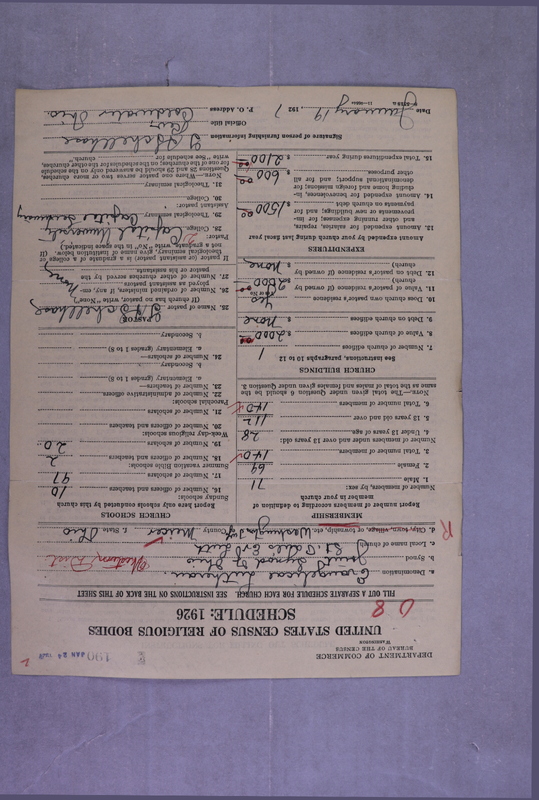 DEPARTMENT OF COMMERCE
BUREAU OF THE CENSUS
WASHINGTON
190 JAN 24
UNITED STATES CENSUS OF RELIGIOUS BODIES
SCHEDULE: 1926
08
FILL OUT A SEPARATE SCHEDULE FOR EACH CHURCH. SEE INSTRUCTIONS ON THE BACK OF THIS SHEET
a. Denomination Evangelical Lutheran
b. Synod Joint Synod of Ohio
c. Local name of church St Paul's Ev Luth
d. City, town, village, or township, etc. Washington Tp County Mercer State Ohio
R
MEMBERSHIP
Report number of members according to definition of member in your church
Number of members, by sex:
1. Male 71
2. Female 69
3. Total number of members 140
Number of members under and over 13 years old:
4. Under 13 years of age 28
5. 13 years old and over 112
6. Total number of members 140
NOTE.—The total given under Question 6 should be the same as the total of males and females given under Question 3.
CHURCH BUILDINGS
See instructions, paragraphs 10 to 12
7. Number of church edifices 1
8. Value of church edifices $ 2000
9. Debt on church edifices $ None
10. Does church own pastor's residence Yes
11. Value of pastor's residence (if owned by church) $ 2000
12. Debt on pastor's residence (if owned by church) $ None
EXPENDITURES
Amount expended by your church during last fiscal year
13. Amount expended for salaries, repairs, and other running expenses; for improvements or new buildings; and for payments on church debt $ 1500
14. Amount expended for benevolences, including home and foreign missions; for denominational support; and for all other purposes $ 600
15. Total expenditures during year $ 2100
CHURCH SCHOOLS
Report here only schools conducted by this church
Sunday schools:
16. Number of officers and teachers 10
17. Number of scholars 47
Summer vacation Bible schools:
18. Number of officers and teachers 2
19. Number of scholars 20
Week-day religious schools:
20. Number of officers and teachers
21. Number of scholars
Parochial schools:
22. Number of administrative officers
23. Number of teachers—
a. Elementary (grades 1 to 8)
b. Secondary
24. Number of scholars—
a. Elementary (grades 1 to 8)
b. Secondary
PASTOR
25. Name of pastor
(If church has no pastor, write "None")
26. Number of ordained ministers, if any, employed as assistant pastors None
27. Number of other churches served by the pastor or his assistants
If pastor (or assistant pastor) is a graduate of a college or theological seminary, give name of institution below. (If not a graduate, write "No" in the space indicated.)
Pastor:
28. College Capital University
29. Theological seminary Capital Seminary
Assistant pastor:
30. College
31. Theological seminary
NOTE.—Where one pastor serves two or more churches, Questions 25 and 28 should be answered only on the schedule for one of the churches; on the schedules for the other churches, write "See schedule for church."
Signature of person furnishing information
Official title Pastor
P. O. Address Coldwater Ohio
Date January 19, 1927